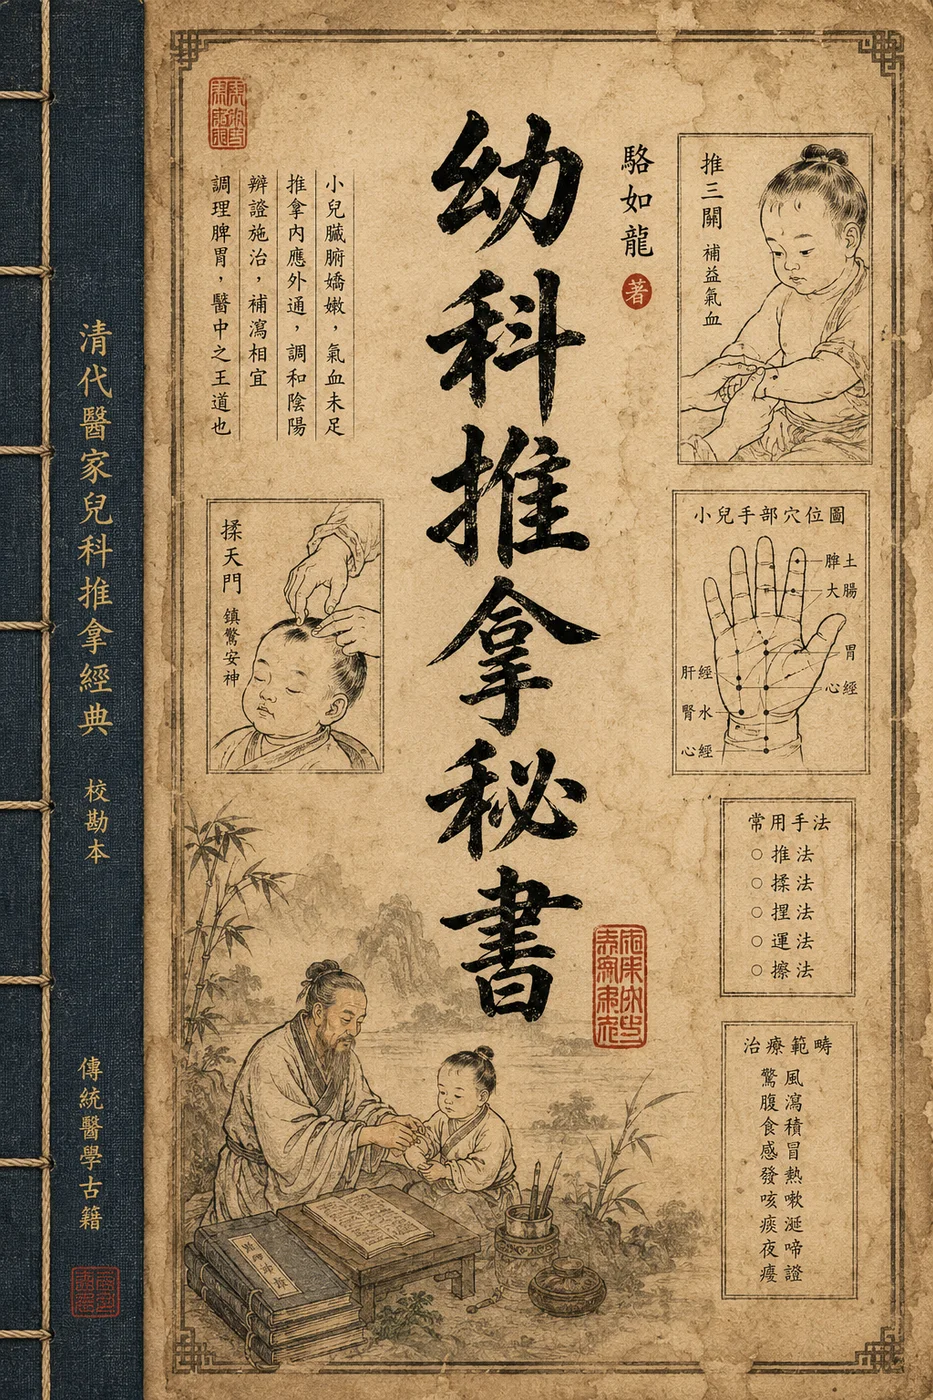 幼科推拿秘書
駱如龍
著
推三關
補益氣血
小兒臟腑嬌嫩，氣血未足
推拿內應外通，調和陰陽
辨證施治，補瀉相宜
調理脾胃，醫中之王道也
揉天門
鎮驚安神
小兒手部穴位圖
脾土
大腸
胃
心經
肝經
腎水
心經
常用手法
○推法
○揉法
○捏法
○運法
○擦法
治療範疇
驚風
腹瀉
食積
感冒
發熱
咳嗽
痰涎
夜啼
癭證
清代醫家兒科推拿經典
校勘本
傳統醫學古籍